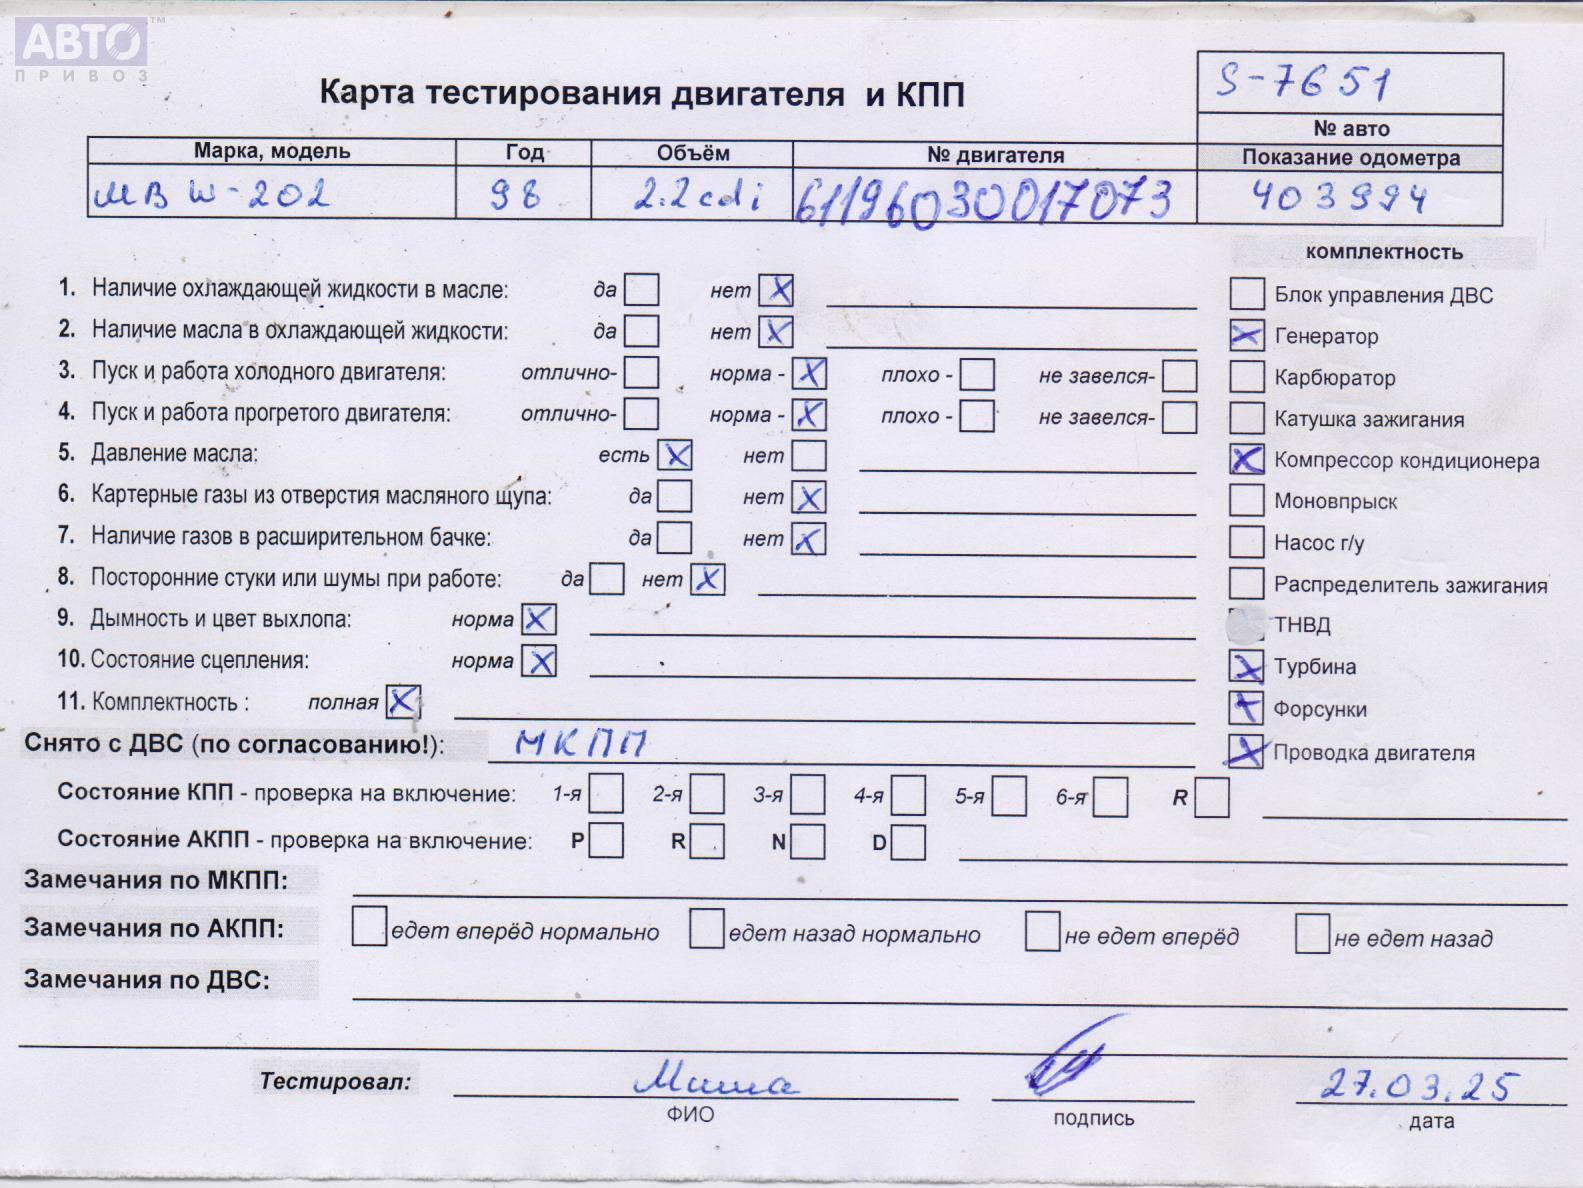 АВТО™
ПРИВОЗ
Карта тестирования двигателя и КПП
S-7651
№ авто
Марка, модель Год Объём № двигателя Показание одометра
МВ W-202 98 2.2 cdi 61196030017073 403994
комплектность
1. Наличие охлаждающей жидкости в масле: да нет X
Блок управления ДВС
2. Наличие масла в охлаждающей жидкости: да нет X
X Генератор
3. Пуск и работа холодного двигателя: отлично- норма - X плохо - не завелся-
Карбюратор
4. Пуск и работа прогретого двигателя: отлично- норма - X плохо - не завелся-
Катушка зажигания
5. Давление масла: есть X нет
X Компрессор кондиционера
6. Картерные газы из отверстия масляного щупа: да нет X
Моновпрыск
7. Наличие газов в расширительном бачке: да нет X
Насос г/у
8. Посторонние стуки или шумы при работе: да нет X
Распределитель зажигания
9. Дымность и цвет выхлопа: норма X
ТНВД
10. Состояние сцепления: норма X
X Турбина
11. Комплектность : полная X
X Форсунки
Снято с ДВС (по согласованию!): МКПП
X Проводка двигателя
Состояние КПП - проверка на включение: 1-я 2-я 3-я 4-я 5-я 6-я R
Состояние АКПП - проверка на включение: P R N D
Замечания по МКПП:
Замечания по АКПП: едет вперёд нормально едет назад нормально не едет вперёд не едет назад
Замечания по ДВС:
Тестировал: Миша 27.03.25
ФИО подпись дата